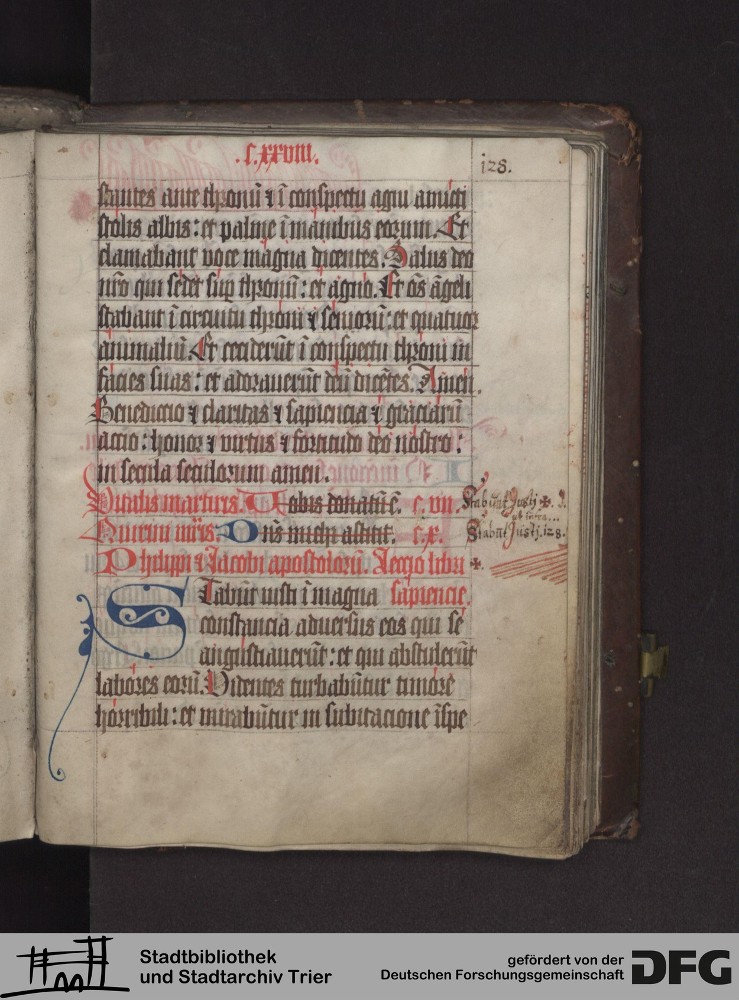 .c.xxviii.
128.
stantes ante thronū ⁊ ī conspectu agni amicti
stolis albis: et palme ī manibus eorum. Et
clamabant voce magna dicentes. Salus deo
nr̄o qui sedet sup thronū: et agno. Et oēs āgeli
stabant ī circuitu throni ⁊ seniorū: et quatuor
animaliū. Et ceciderūt ī conspectu throni in
facies suas: et adorauerūt deū dicētes. Amen.
Benedictio ⁊ claritas ⁊ sapiencia ⁊ graciarū
actio: honor ⁊ virtus ⁊ fortitudo deo nostro:
in secula seculorum amen.
Vitalis martiris. Uobis donatū ē. c. vii.
Quirini mr̄is. Dn̄s michi astitit. c. x.
Philippi ⁊ Jacobi apostolorū. Lectio libri
Stabunt Justj
ut infra...
Stabūt Justj. 128.
Stabūt iusti ī magna sapiencie.
constancia aduersus eos qui se
angustiauerūt: et qui abstulerūt
labores eorū. Videntes turbabūtur timore
horribili: et mirabūtur in subitacione īspe
Stadtbibliothek
und Stadtarchiv Trier
gefördert von der
Deutschen Forschungsgemeinschaft
DFG